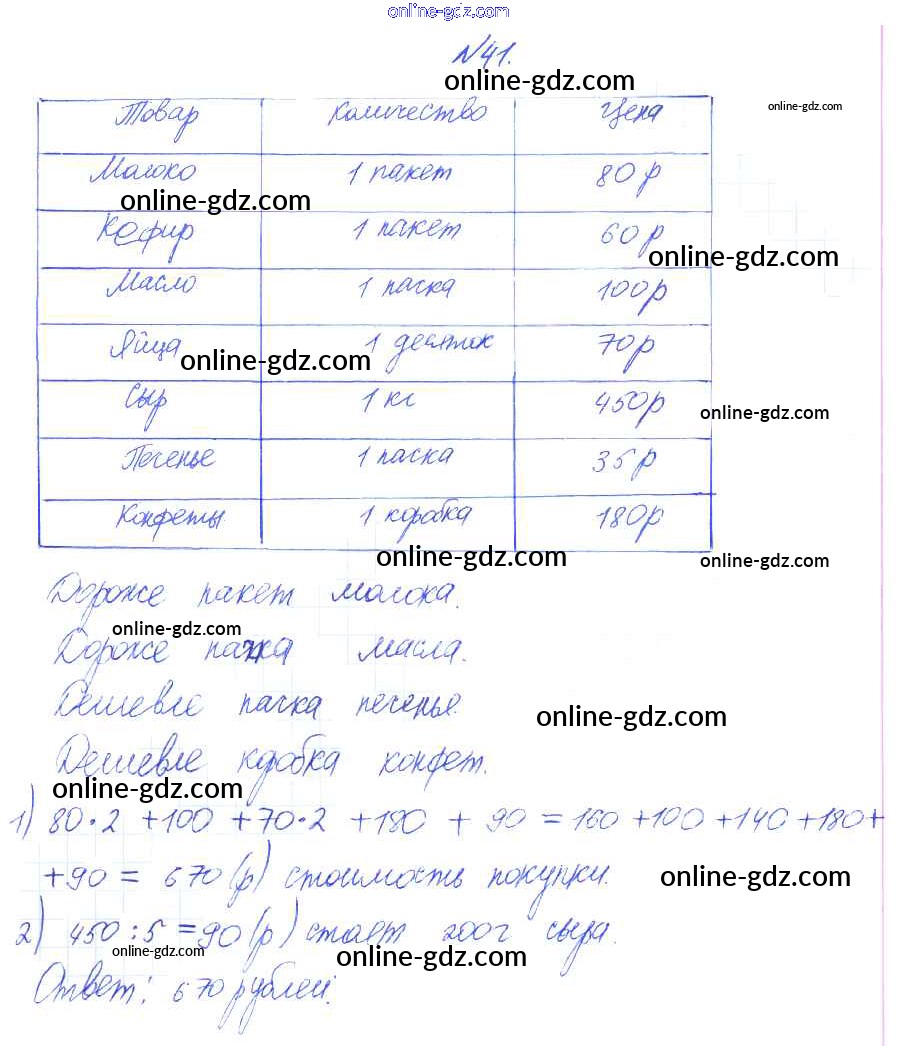 online-gdz.com
N41.
online-gdz.com
Товар Количество Цена online-gdz.com
Молоко 1 пакет 80 р
online-gdz.com
Кефир 1 пакет 60 р
online-gdz.com
Масло 1 пачка 100р
Яйца 1 десяток 70р
online-gdz.com
Сыр 1 кг 450р
online-gdz.com
Печенье 1 пачка 35 р
Конфеты 1 коробка 180р
online-gdz.com online-gdz.com
Дороже пакет молока.
online-gdz.com
Дороже пачка масла.
Дешевле пачка печенья.
online-gdz.com
Дешевле коробка конфет.
online-gdz.com
1) 80·2 +100 +70·2 +180 + 90 = 160 +100 +140 +180+
+90 = 670 (р) стоимость покупки.
online-gdz.com
2) 450 : 5 = 90 (р) стоит 200г сыра.
online-gdz.com online-gdz.com
Ответ: 670 рублей.